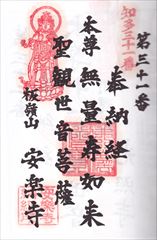 知多三十一番
第三十一番
奉納経
本尊無量寿如来
聖観世音菩薩
板嶺山
安楽寺